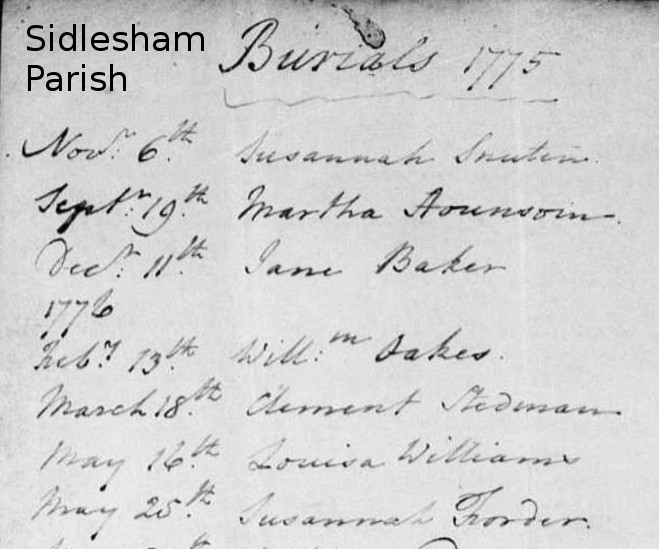 Sidlesham
Parish
Burials 1775
Novr. 6th. Susannah
Septr. 19th. Martha Hounsom.
Decr. 11th. Jane Baker
1776
Feby 13th. Will:m Oakes.
March 18th. Clement Stedman
May 16th. Louisa Williams
May 25th. Susannah Forder.